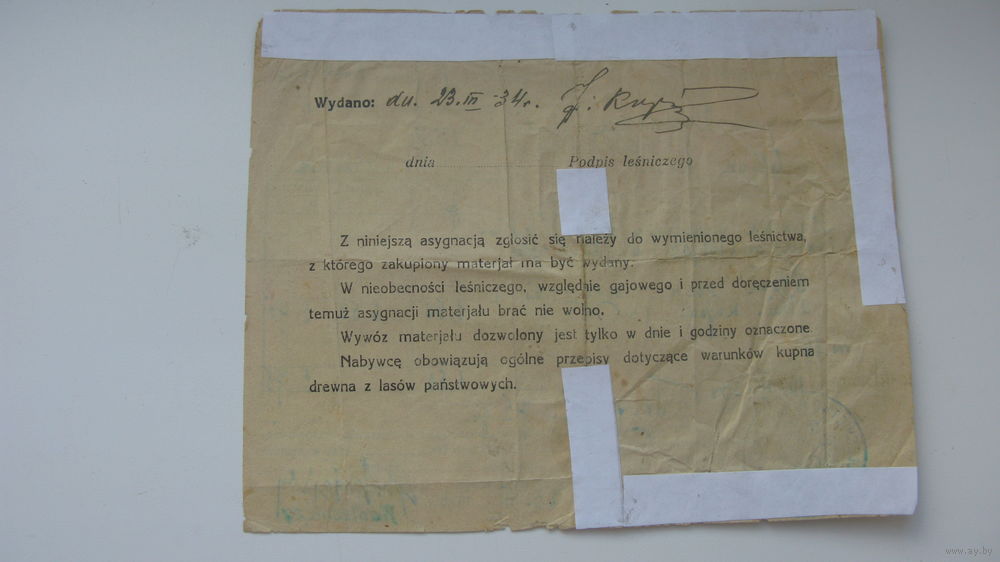 Wydano: dn. 23.III-34r. J.
dnia Podpis leśniczego
Z niniejszą asygnacją zgłosić się należy do wymienionego leśnictwa,
z którego zakupiony materjał ma być wydany.
W nieobecności leśniczego, względnie gajowego i przed doręczeniem
temuż asygnacji materjału brać nie wolno.
Wywóz materjału dozwolony jest tylko w dnie i godziny oznaczone.
Nabywcę obowiązują ogólne przepisy dotyczące warunków kupna
drewna z lasów państwowych.
www.ay.by